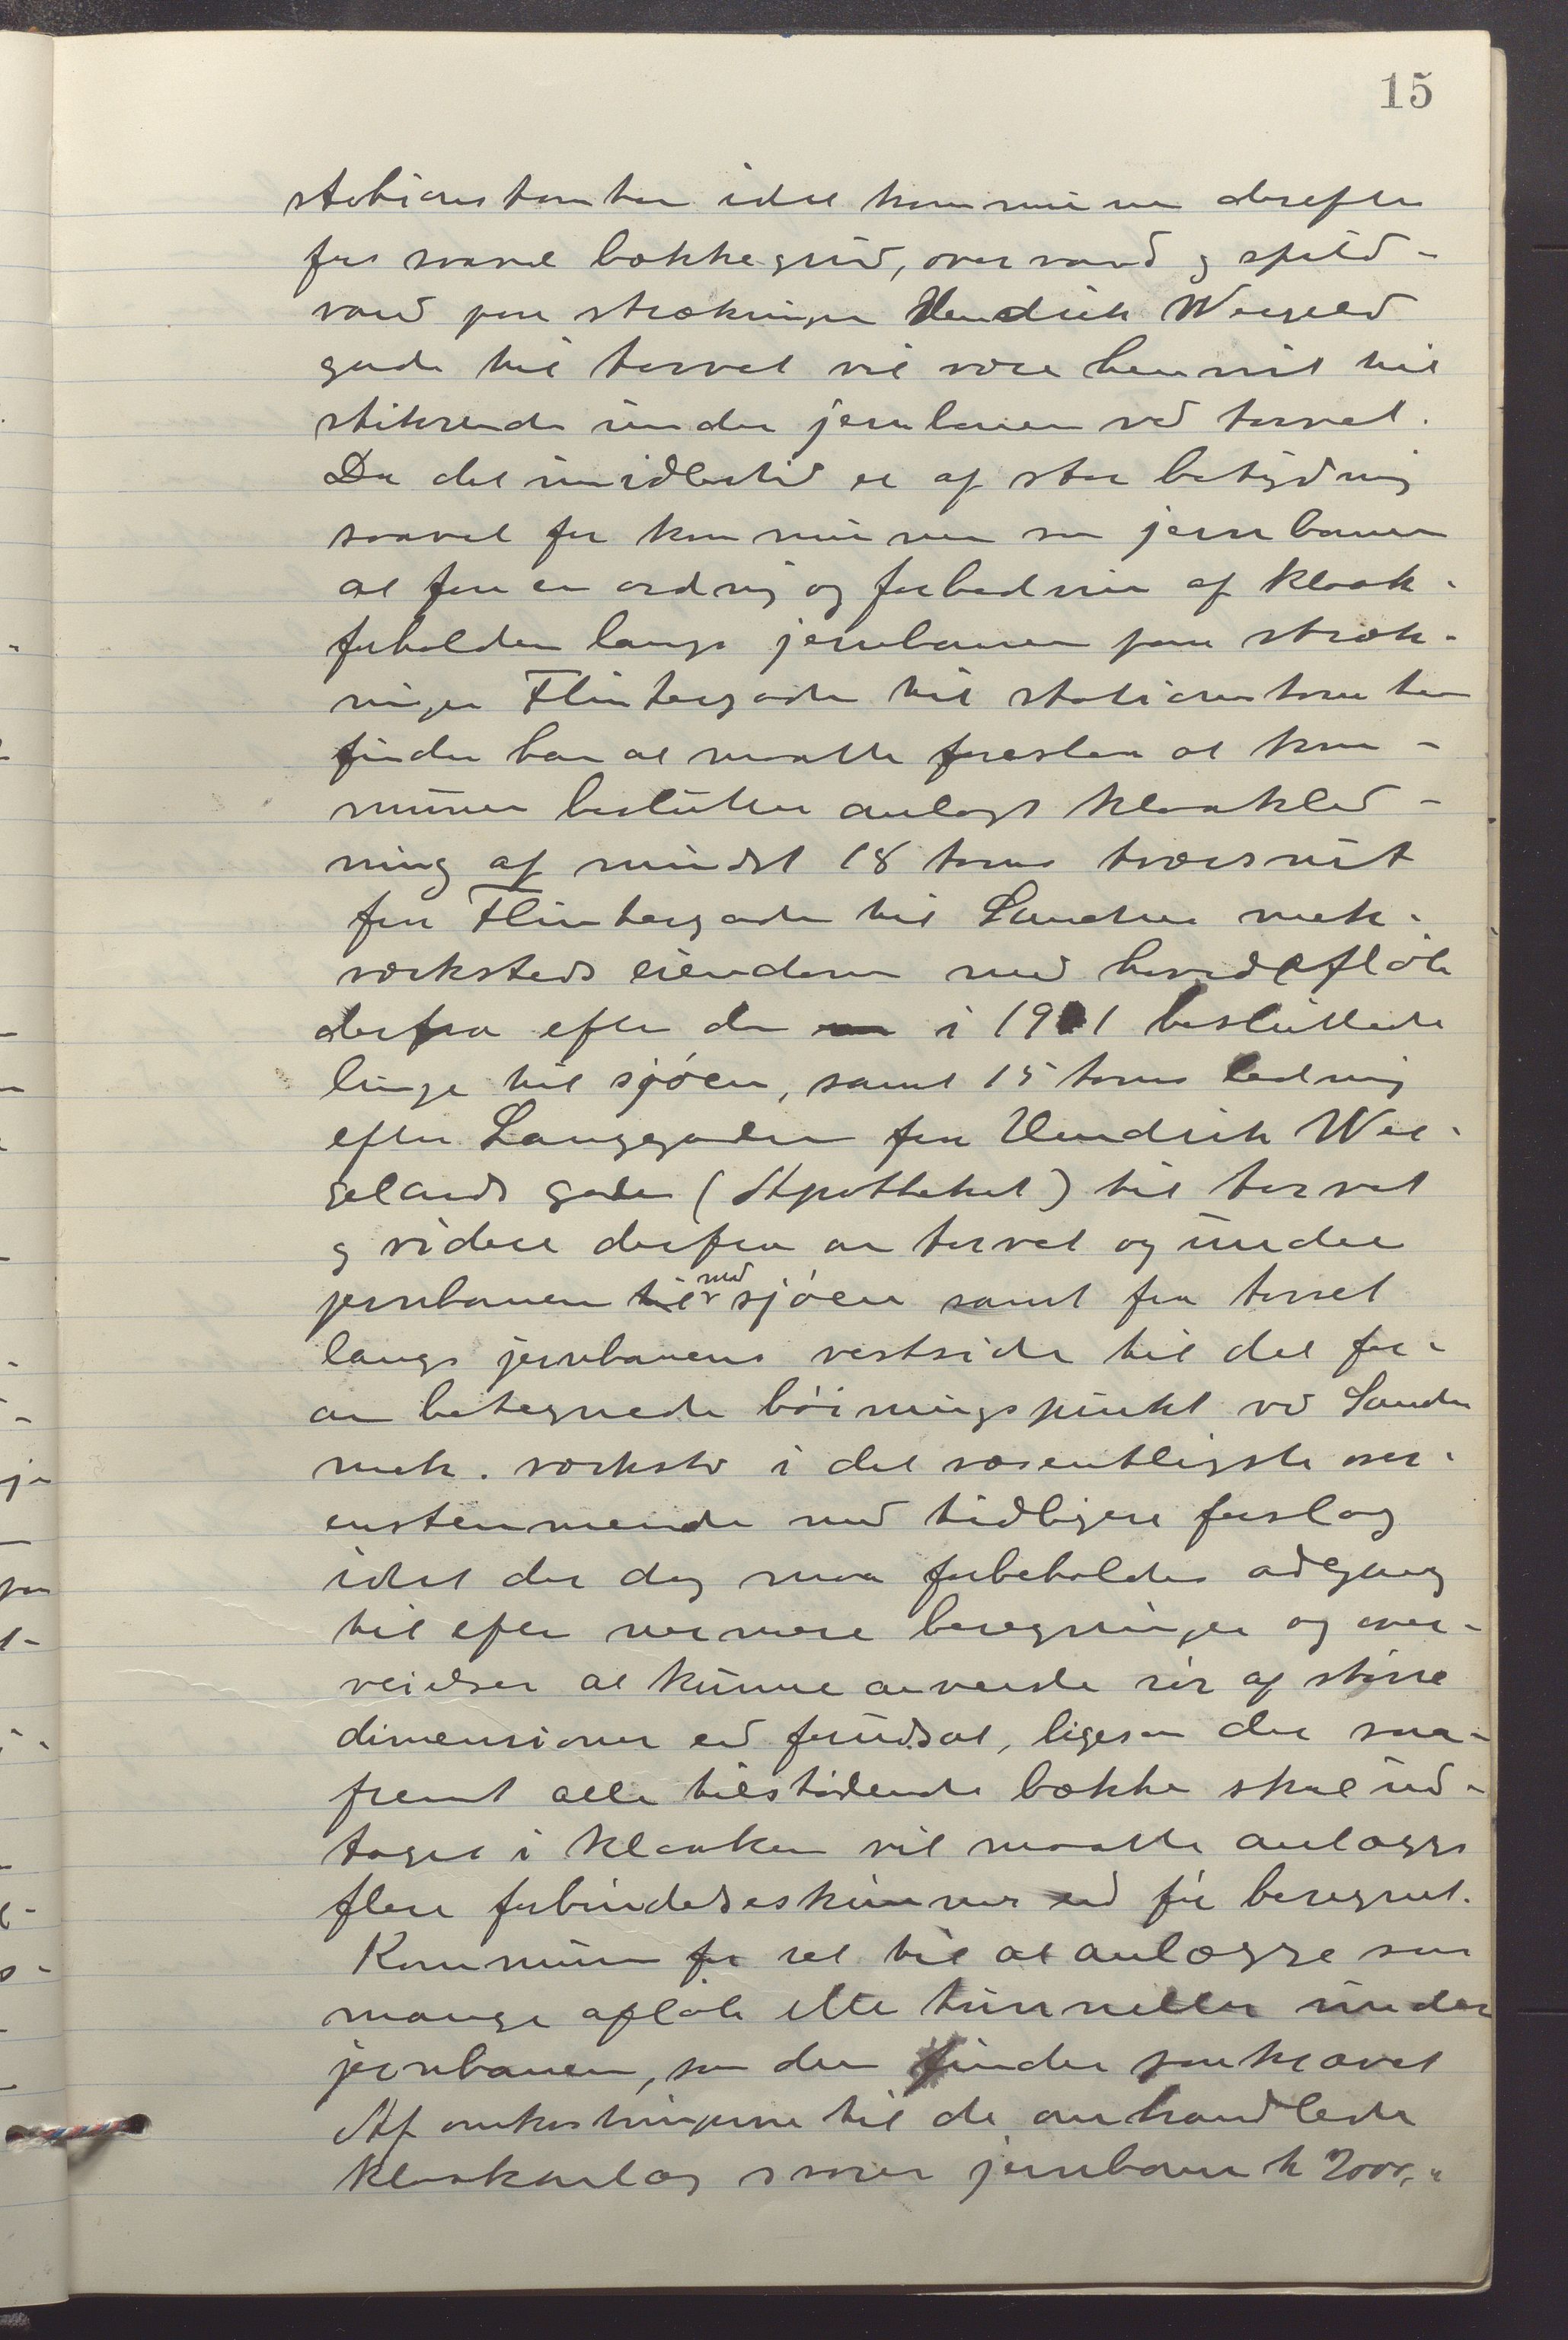 15
stationstomten idet kommunen derefter
for saavel bækkegrus, overvand og spild-
vand paa strækningen Hendrik Wergeld
gade til torvet vil være henvist til
stikrende under jernbanen ved torvet.
Da det imidlertid er af stor betydning
saavel for kommunen som jernbanen
at faa en ordning og forbedring af kloak-
forholden langs jernbanen paa stræk-
ningen Flintergaden til stationstomten
finder han at maatte foreslaa at kom-
munen beslutter anlagt kloakled-
ning af mindst 18 toms tværsnit
fra Flintergaden til Sandnes mek.
værksteds eiendom med hovedafløb
derfra efter den i 1901 besluttede
linje til sjøen, samt 15 toms ledning
efter Langgaden fra Hendrik Wer-
gelands gade (Apotheket) til torvet
og videre derfra over torvet og under
jernbanen til mod sjøen samt fra torvet
langs jernbanens vestside til det for-
an betegnede bøiningspunkt ved Sandnes
mek. værksted i det væsentligste over-
enstemmende med tidligere forslag
idet der dog maa forbeholdes adgang
til efter nærmere beregninger og over-
veielser at kunne anvende rør af større
dimensioner end forudsat, ligesom der saa-
fremt alle tilstødende bække skal ind-
tages i kloaken vil maatte anlægges
flere forbindelseskummer end før beregnet.
Kommunen faar ret til at anlægge saa
mange afløb eller tunneller under
jernbanen, som den finder paakrævet
Af omkostningerne til de omhandlede
kloakanlæg svarer jernbanen kr 2000,-